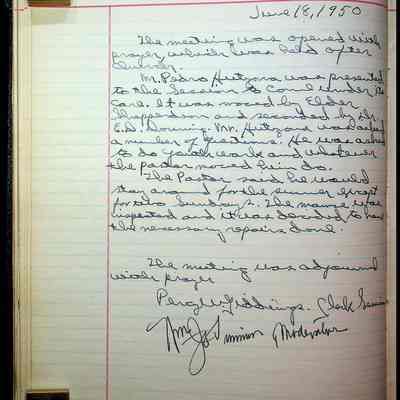 June 18, 1950
The meeting was opened with
prayer, which was held after
church.
Mr. Pedro was presented
to the Session to come under its
care. It was moved by Elder
and seconded by Dr.
E.D. Downing. Mr. was asked
a number of questions. He was asked
to do work and whatever
the pastor moved him do.
The Pastor said he would
stay around for the summer except
for two Sundays. The manse was
inspected and it was decided to have
the necessary repairs done.
The meeting was adjourned
with prayer
Percy W. Giddings. Clerk Session
Wm Moderator